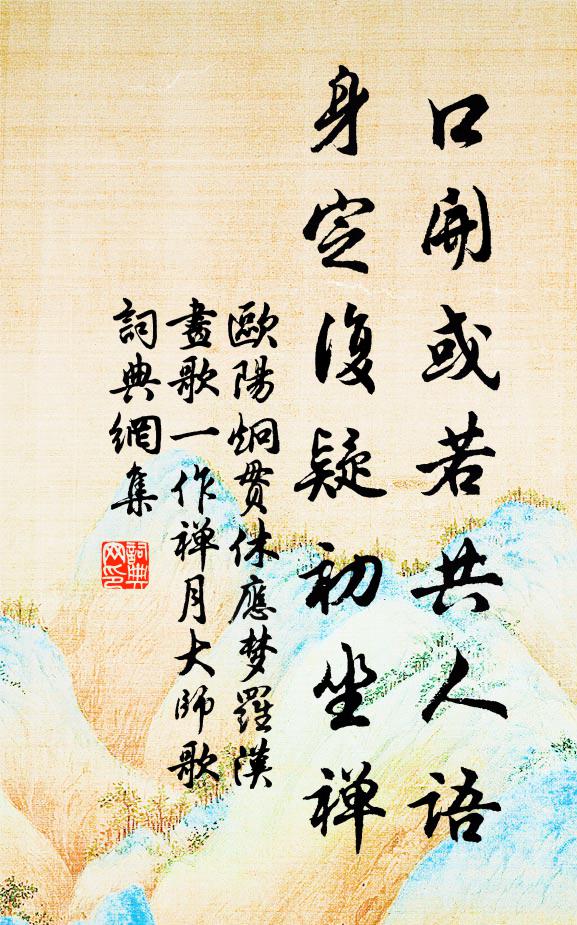 口開或若共人语
身定復疑初坐禅
歐陽炯貫休應梦羅漢
畫歌一作禅月大师歌
詞典網集
詞典
网印